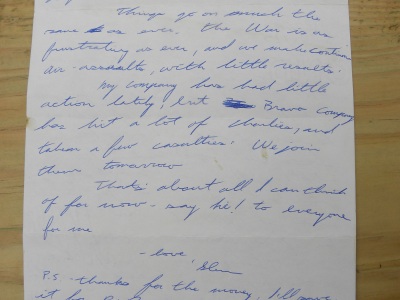 Things go on much the
same as ever. The War is as
frustrating as ever, and we make
air-assaults, with little results.
My company has had little
action lately, but Bravo Company
has hit a lot of Charlies, and
taken a few casualties. We join
them tomorrow
That's about all I can think
of for now - say hi! to everyone
for me
- love,
P.S. - thanks for the money, I'll
it